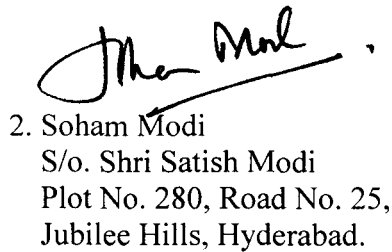 Soham Modi
2. Soham Modi
S/o. Shri Satish Modi
Plot No. 280, Road No. 25,
Jubilee Hills, Hyderabad.